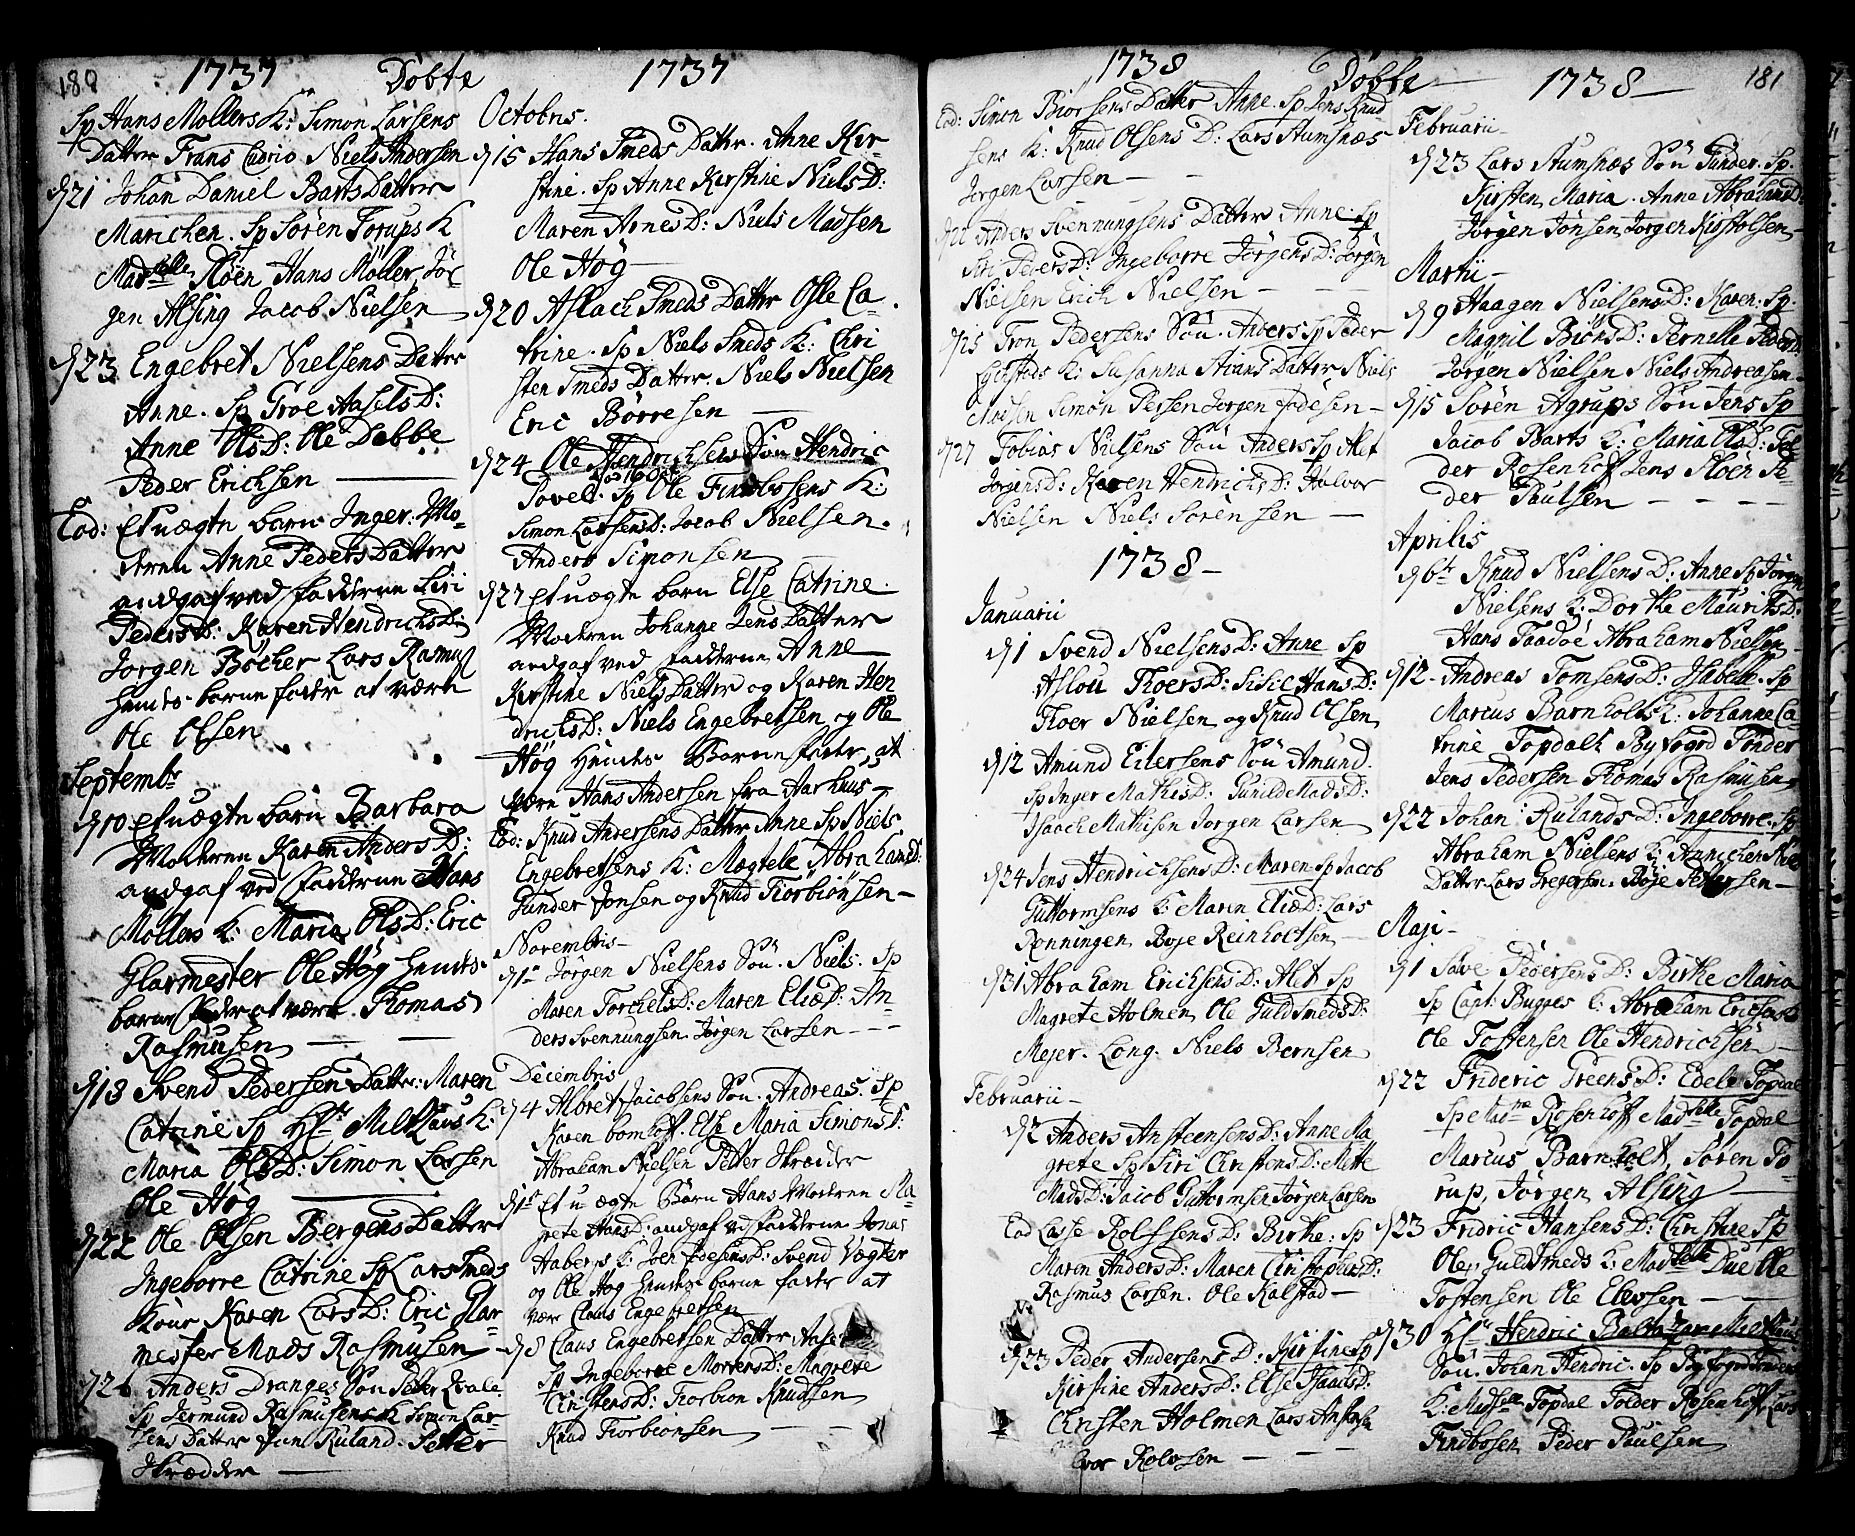 180 1737 Döbte
Sp Hans Mollers K: Simon Larsens
Datter Frans Niels Andersen
d 21 Johan Daniel Barts Datter
Marichen. Sp Sören Torups K
Madselle Floen Hans Möller, Jör
gen Alsing Jacob Nielsen
d 23 Engebret Nielsens Datter
Anne. Sp Groe Aasels D:
Anne Ols D: Ole Debbe
Peder Erichsen
Eod: et uægte barn Inger. Mo-
deren Anne Peders Datter
andgaf ved fadderne Siri
Peders D: Karen Hendrichs D:
Jorgen Böcher Lars Rasmus
hendes barne fader at være
Ole Olsen
Septembr
d 10 et uægte barn Barbara
Moderen Karen Anders D:
andgaf ved fadderne Hans
Mollers K: Maria Ols D: Eric
Glarmester Ole Høg hendes
barne fader at være Thomas
Rasmusen
d 13 Svend Pedersen Datter: Maren
Catrine Sp Hr Mklaus K:
Maria Ols D: Simon Larsen
Ole Høg
d 22 Ole Olsen Bergens Datter
Ingeborre Catrine Sp Lars Smeds
Kone Karen Lars D: Eric Glar-
mester Mads Rasmusen
Anders Dranges Sön Peder
Sp Jermund Rasmusens K Simon Lar-
sens Datter Ruland. Petter
Skrædder
1737
Octobris.
d 15 Hans Smeds Datter. Anne Kir-
stine. Sp Anne Kirstine Niels D:
Maren Arnes D: Niels Madsen
Ole Høg
d 20 Aslach Smeds Datter Osle Ca-
trine. Sp Niels Smeds K: Chri
sten Smeds Datter. Niels Nielsen
Eric Börresen
d 24 Ole Hendrichsens Sön Hendric
Povel. Sp Ole Findbosens K:
Simon Larsens D: Jacob Nielsen.
Anders Simonsen
d 27 et uægte barn Else Catrine
Moderen Johanne Jens Datter
andgaf ved fadderne Anne
Kirstine Niels Datter og Karen Hen
drichs D: Niels Engebretsen og Ole
Høg hendes Barne fader at
være Hans Andersen fra Aarhuus
Eod: Knud Andersens Datter Anne Sp Niels
Engebretsens K: Magtele Abrahams D:
Gunder Jonsen og Knud Tiorbiönsen
Novembris
d 1 Jörgen Nielsens Sön. Niels. Sp
Maren Torchels D: Maren Eliæ D: An
ders Svennungsen. Jörgen Larsen
Decembris
d 4 Albret Jacobsens Sön. Andreas. Sp
Karen bomhoff. Else Maria Simons D:
Abraham Nielsen Petter Skrædder
d 1 Et u ægte Barn Hans Moderen Ma-
grete Hans D: andgaf ved fadderne Jonas
Aabers K: Joen Svend Vogter
og Ole Høg hendes barne fader at
være Claus Engebretsen
d 8 Claus Engebretsen Datter Aase
Sp Ingeborre Mortens D: Magrete
Christens D: Tiorbion Knudsen
Knud Tiorbionsen
1738 Döbte
Eod: Simon Biörsens Datter Anne. Sp Jens Knud
sens K: Knud Olsens D: Lars Stumsnæs
Jorgen Larsen
Anders Svennungsens Datter Anne. Sp
Siri Peders D: Ingeborre Jörgens D: Jörgen
Nielsen Erich Nielsen
d 25 Tron Pedersens Sön. Anders Sp Peder
K: Susanna Datter Niels
Simon Persen Jorgen
d 27 Tobias Nielsens Sön Anders Sp Alet
Jörgens D: Karen Hendrichs D: Halvor
Nielsen Niels Sörensen
1738
Januarii
d 1 Svend Nielsens D: Anne Sp
Aslou Thoers D: Sisic Hans D:
Thoer Nielsen og Knud Olsen
d 12 Amund Eilersens Sön Amund.
Sp Inger Mathis D: Gunild Mads D:
Isaach Mathisen Jorgen Larsen
d 24 Jens Hendrichsens D: Maren Sp Jacob
Guttormsens K: Maren Eliæ D: Lars
Rönningen Boje Reinholtsen
d 31 Abraham Erichsens D: Alet Sp
Magrete Holmen Ole Guldsmeds D:
Mejer. Long. Niels Bernsen
Februarii
d 2 Anders Ansteensens D: Anne Ma
grete Sp Siri Christens D: Mette
Mads D: Jacob Guttormsen Jörgen Larsen
Eod Lasse Rolfsens D: Birthe: Sp
Maren Anders D: Maren Christophers D:
Rasmus Larsen. Ole Kalstad
d 23 Peder Andersens D: Kirstine Sp
Kirstine Anders D: Else Isaacs D:
Christen Holmen Lars Anstensen
Rolvsen
1738 181
Februarii
d 23 Lars Stumsnæs Sön Gunder. Sp.
Kirsten Maria. Anne Abrahams D:
Jörgen Jönsen Jörgen Kistolsen
Martii
d 9 Haagen Nielsens D: Karen. Sp.
Magnil Biöns D: Pernelle Peders D
Jörgen Nielsen Niels Andreasen
d 15 Sören Agrups Sön Jens Sp
Jacob Barts K: Maria Ols D: Tol-
der Rosenhoff Jens Floen Pe-
der Paulsen
Aprilis
d 6te Knud Nielsens D: Anne Sp Jörgen
Nielsens K: Dorthe Maurits D:
Hans Taadöe Abraham Nielsen
d 12 Andreas Tomsens D: Isabelle. Sp
Marcus Barnholts K: Johanne Ca
trine Topdalh Byfogd Tönder
Jens Pedersen Thomas Rasmusen
d 22 Johan Rulands D: Ingeborre. Sp
Abraham Nielsens K: Annichen Niels
Datter Lars Gregersen. Boje Pettersen
Maji
d 1 Save Pedersens D: Birthe Maria
Sp Capt: Bugges K: Abraham Ericsens
Ole Tostensen Ole Hendrichsen
d 22 Frideric Greens D: Edele Topdal
Sp Madme Rosenhoff Madselle Topdal
Marcus Barnholt, Sören To
rup, Jörgen Alsing
d 23 Fridric Hansens D: Christine Sp
Ole Guldsmeds K: Madselle Due Ole
Tostensen Ole Elevsen
d 30 Hr Hendric Baltazar Mklaus
Sön. Johan Hendric. Sp Byfogd Tönders
K: Topdal Tolder Rosenhoff Lars
Findbosen Peder Paulsen